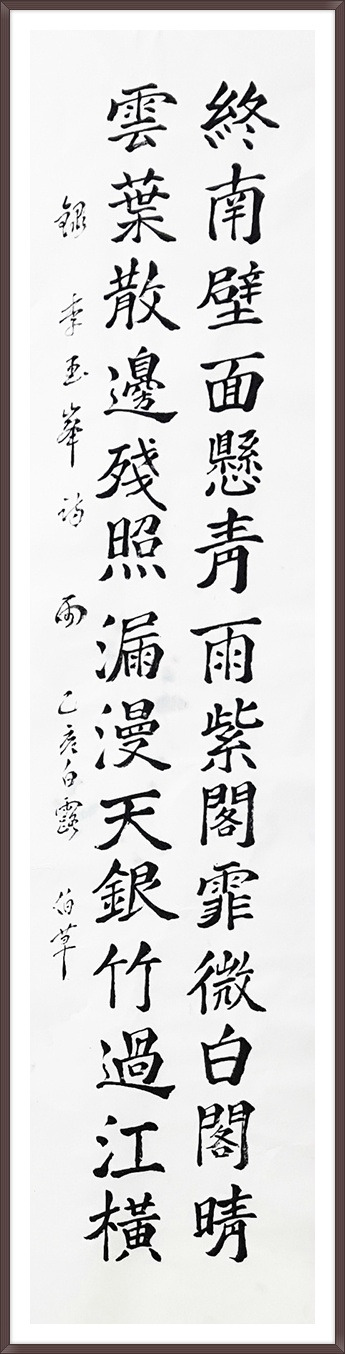 終南壁面懸青雨紫閣霏微白閣晴
雲葉散邊殘照漏漫天銀竹過江橫
錄 李玉峯詩 雨 己亥白露 伯草